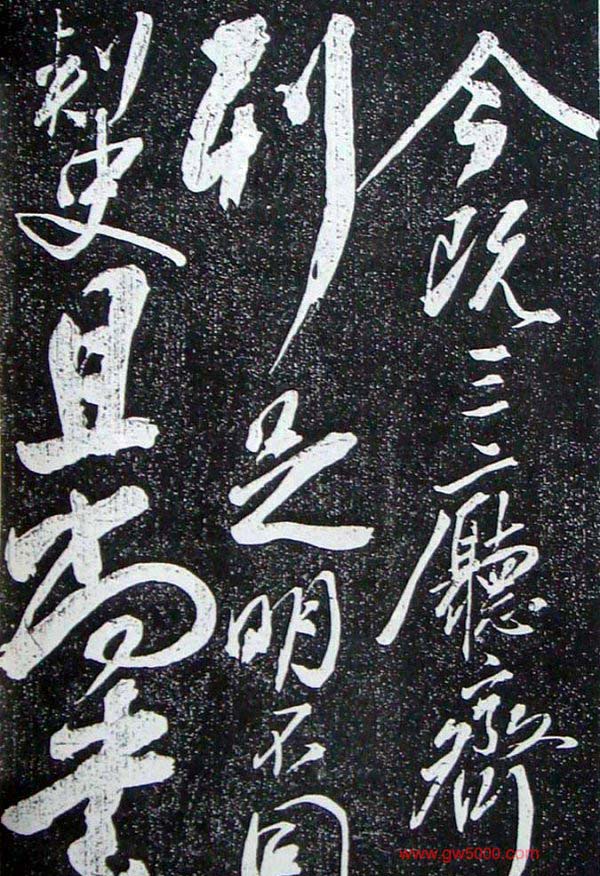 今既三廳齊
列足明不同
刺史且尚書
www.gw5000.com